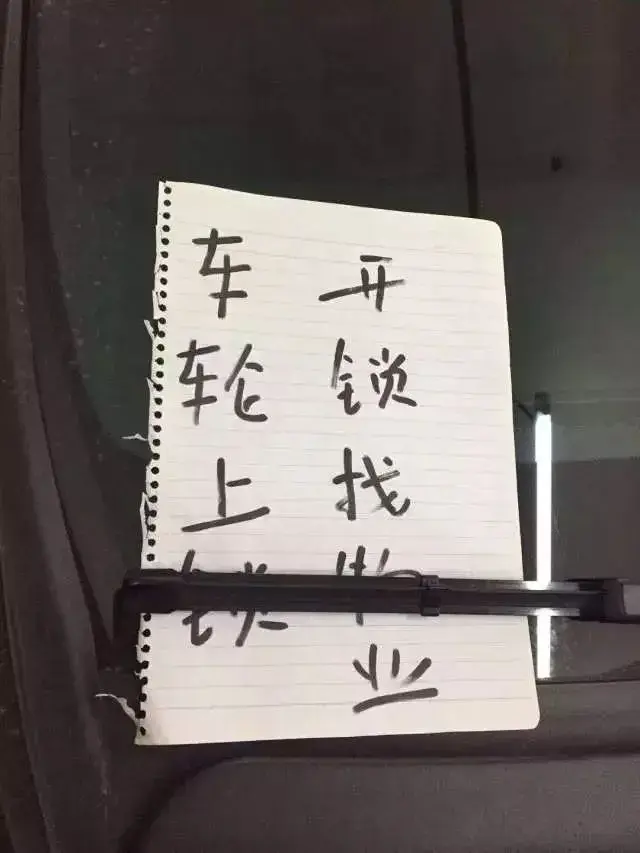 车轮上锁
开锁找物业